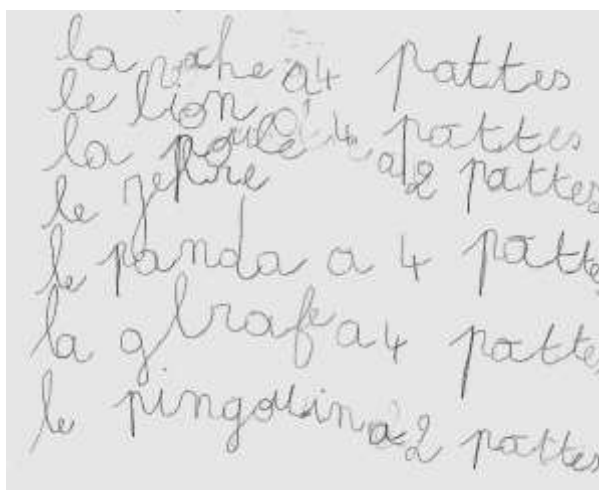 la vahe a 4 pattes
le lion a 4 pattes
la poule a 2 pattes
le zebre
le panda a 4 pattes
la girafe a 4 pattes
le pingouin a 2 pattes